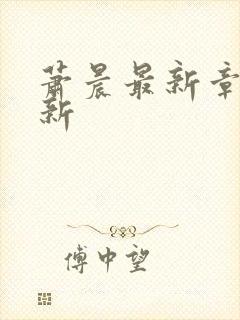 萧晨最新章
新
傅中望